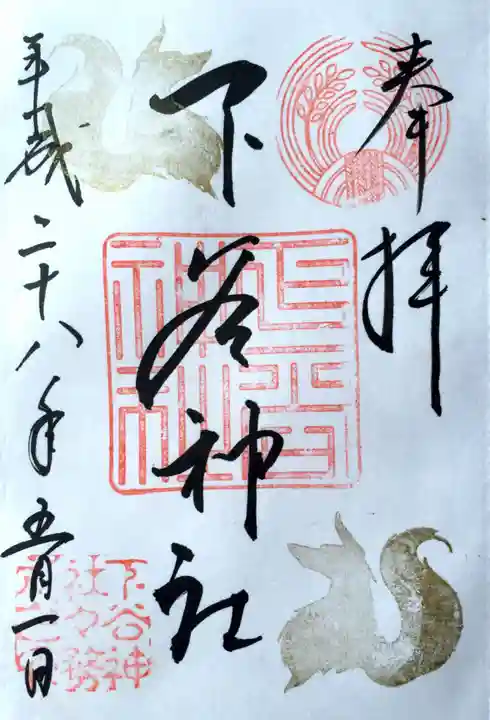 奉拝
下谷神社
平成二十八年五月一日
下谷神
社々務
所之印